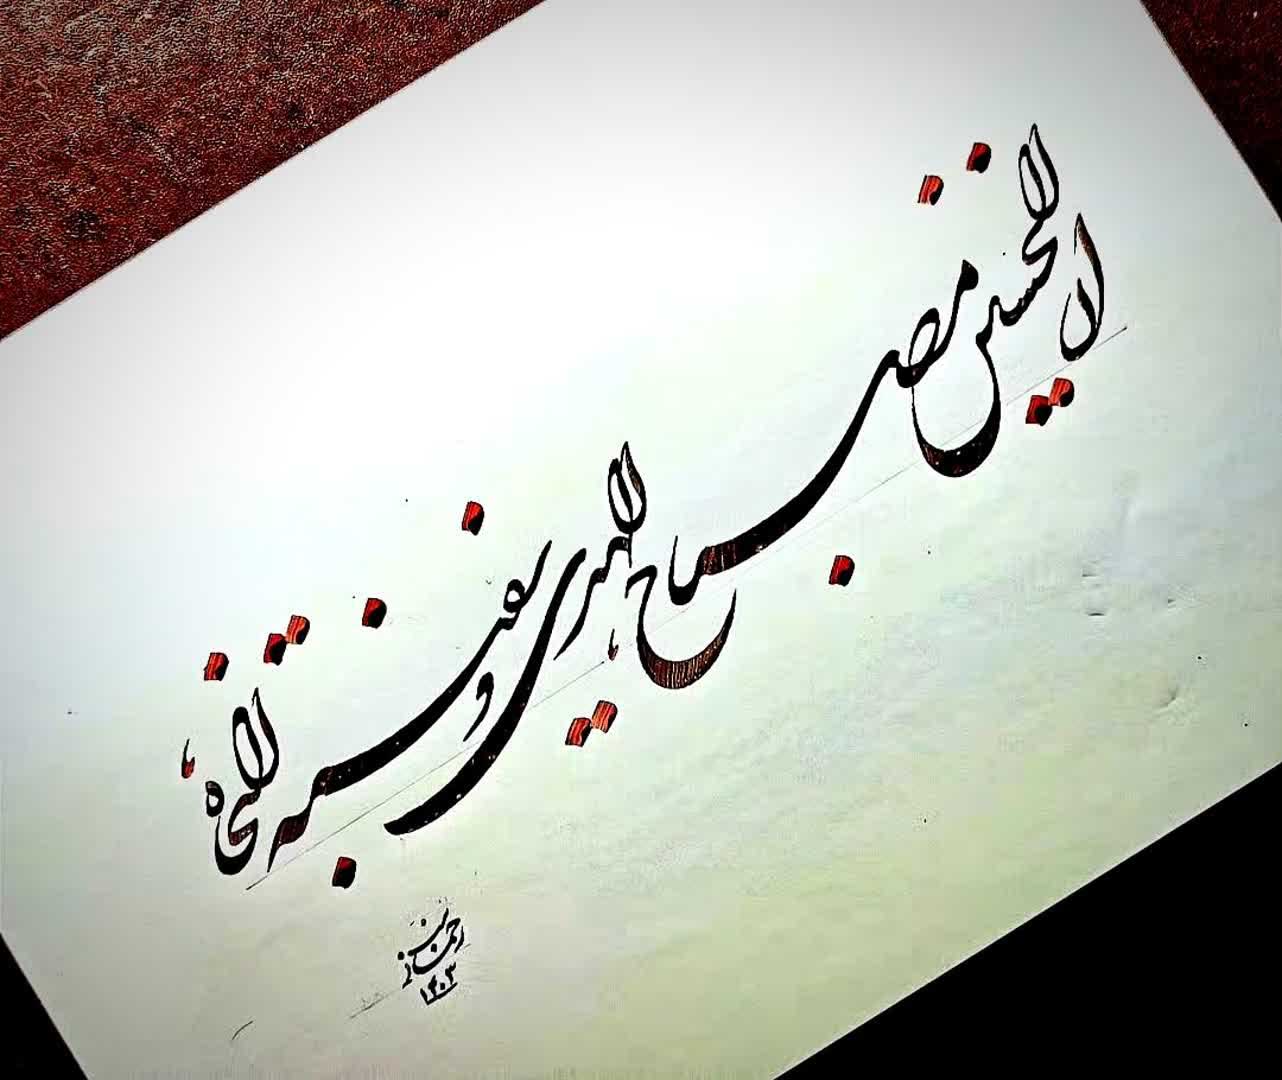 ان الحسین مصباح الهدی و سفینة النجاة
رحمانی
۱۴۰۳